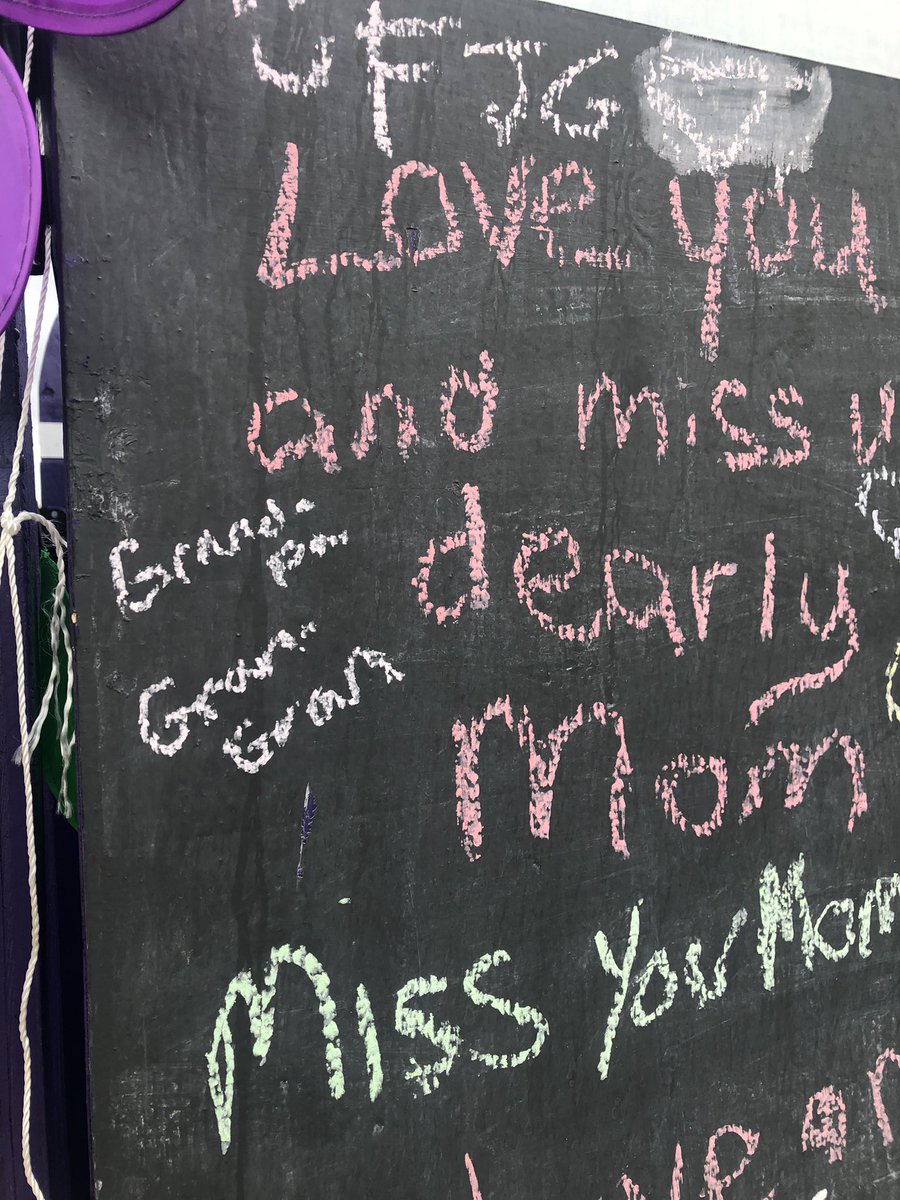 FJG
Love you
and miss u
dearly
Mom
Grand-
pa
Gran-
Gran
Miss You Mom
Love